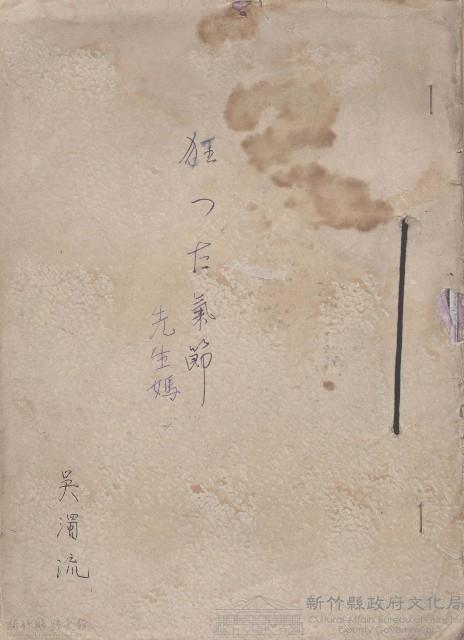 狂つた氣節
先生媽
吳濁流
新竹縣政府文化局
Cultural Affairs Bureau of Hsinchu
County Government